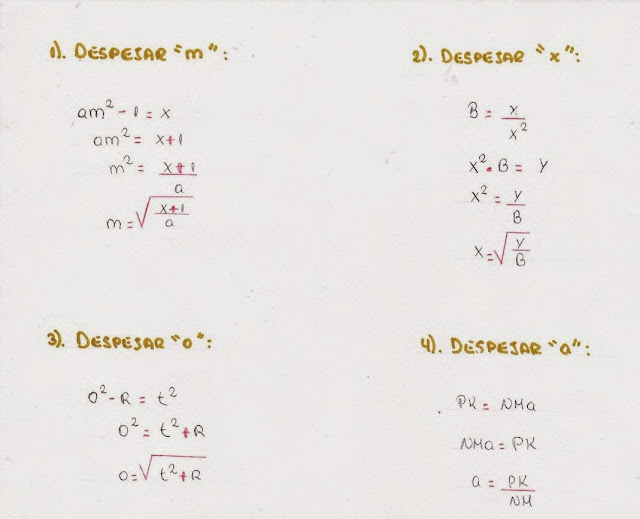 1). DESPEJAR "m":
am² - 1 = x
am² = x+1
m² = x+1/a
m = √x+1/a
2). DESPEJAR "x":
B = x/x²
x² · B = y
x² = y/B
x = √y/B
3). DESPEJAR "o":
O² - R = t²
O² = t² + R
O = √t² + R
4). DESPEJAR "a":
PK = NMa
NMa = PK
a = PK/NM